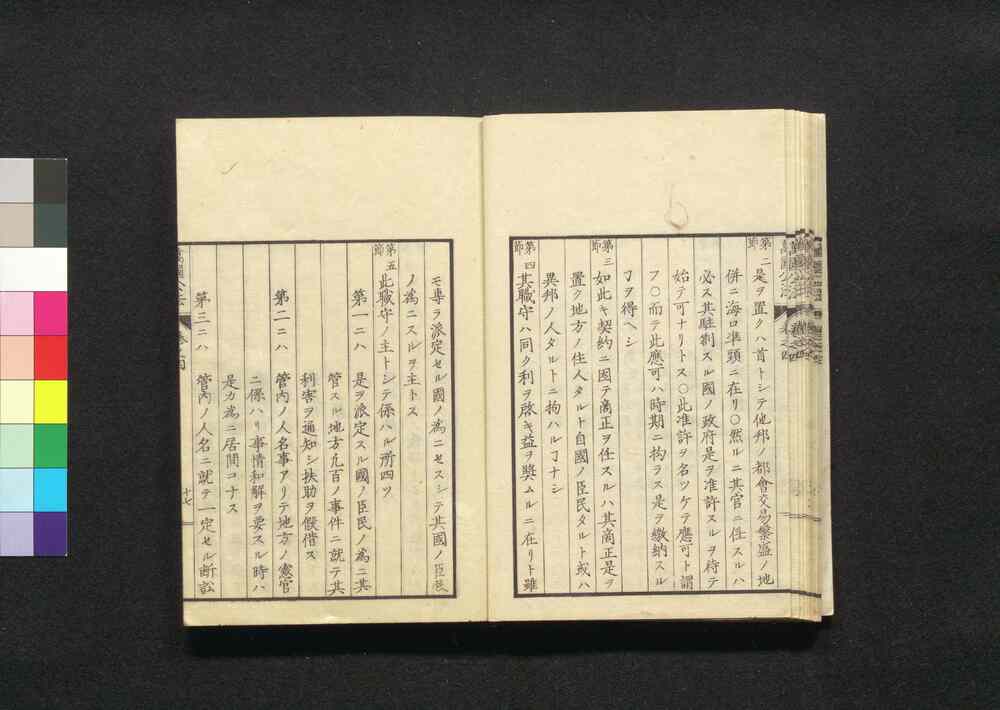 第二節 是ヲ置クハ首トシテ他邦ノ都會交易繁盛ノ地
併ニ海口準頭ニ在リ○然ルニ其官ニ任スルハ
必ス其駐劄スル國ノ政府是ヲ准許スルヲ待テ
始テ可ナリトス○此准許ヲ名ツケテ應可ト謂
フ○而テ此應可ハ時期ニ拘ラス是ヲ繳納スル
ヿヲ得ヘシ
第三節 如此キ契約ニ因テ商正ヲ任スルハ其商正是ヲ
置ク地方ノ住人タルト自國ノ臣民タルト或ハ
異邦ノ人タルトニ拘ハルヿナシ
第四節 其職守ハ同ク利ヲ啓キ益ヲ奬ムルニ在リト雖
モ專ラ派定セル國ノ為ニセスシテ其國ノ臣民
ノ為ニスルヲ主トス
第五節 此職守ノ主トシテ係ハル所四ツ
第一ニハ 是ヲ派定スル國ノ臣民ノ為ニ其
管スル地方九百ノ事件ニ就テ其
利害ヲ通知シ扶助ヲ假借ス
第二ニハ 管內ノ人名事アリテ地方ノ憲官
ニ係ハリ事情和解ヲ要スル時ハ
是カ為ニ居間コナス
第三ニハ 管內ノ人名ニ就テ一定セル斷訟
十七